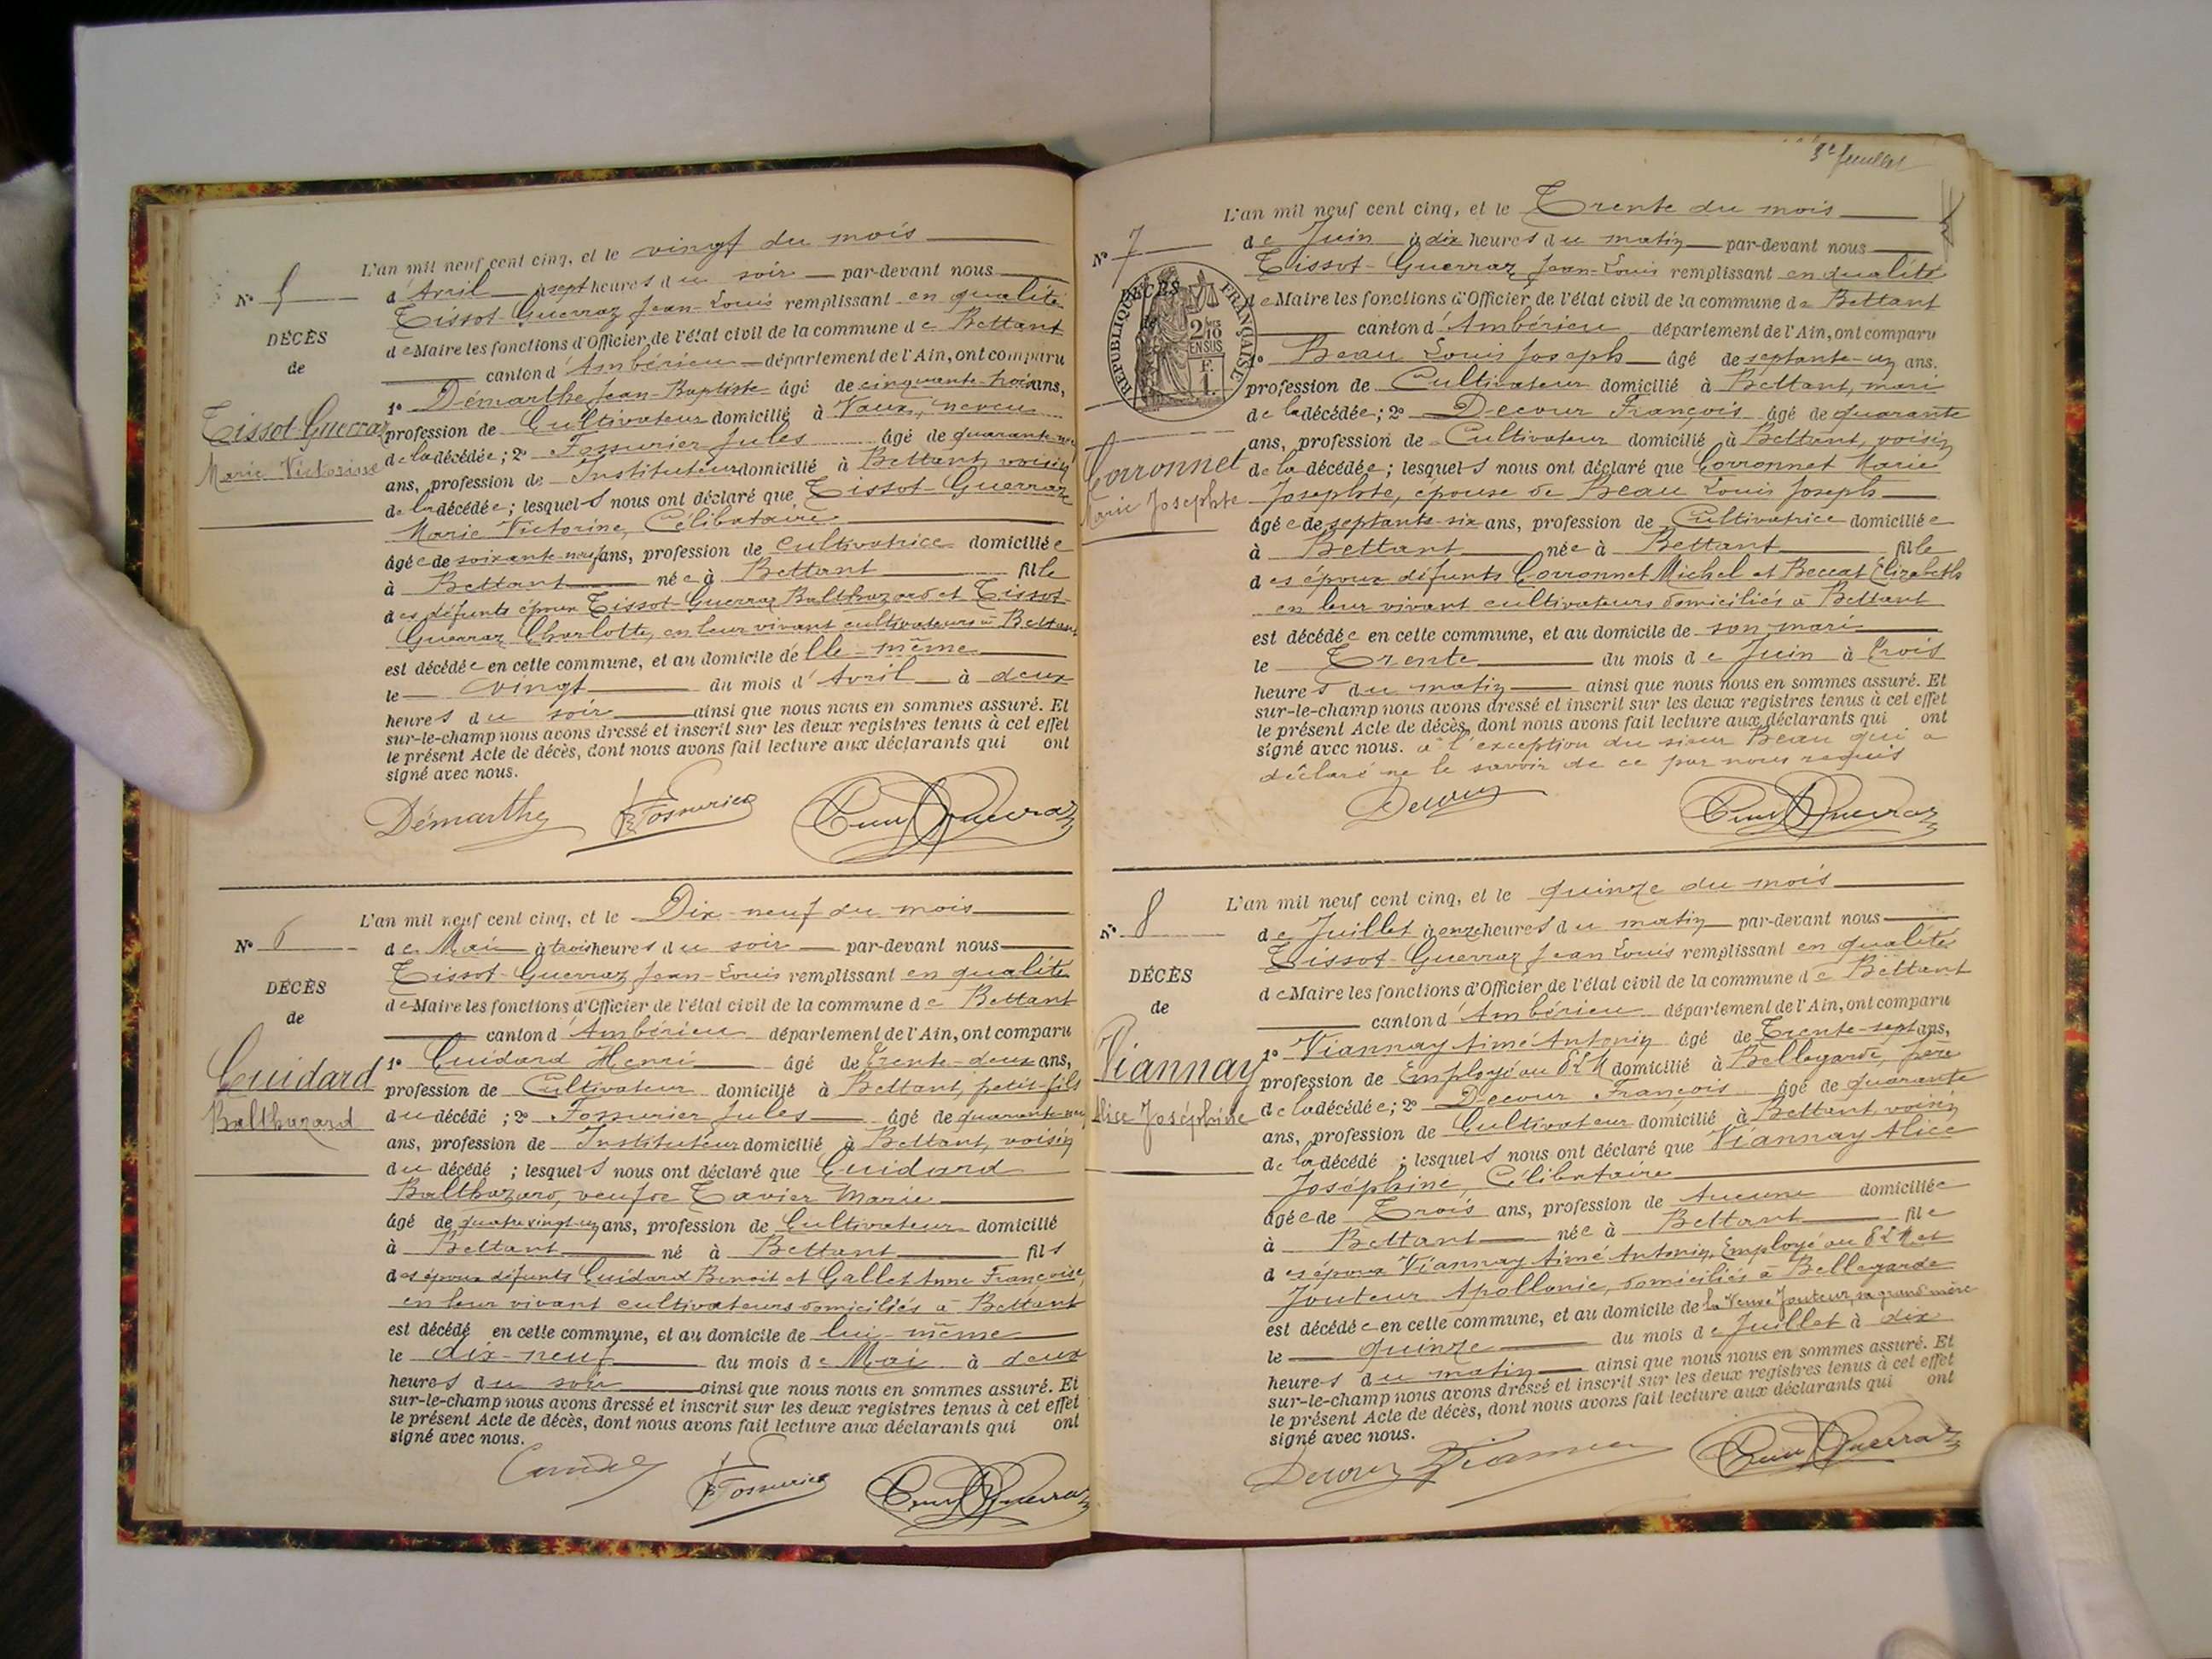 N° 5
DÉCÈS
de
Tissot-Guerraz
Marie Victorine
L'an mil neuf cent cinq, et le vingt du mois
d'Avril à sept heures du soir par-devant nous
Tissot-Guerraz Jean-Louis remplissant en qualité
de Maire les fonctions d'Officier de l'état civil de la commune de Bettant
canton d'Ambérieu département de l'Ain, ont comparu
1° Démarthe Jean-Baptiste âgé de cinquante-trois ans,
profession de Cultivateur domicilié à Vaux, neveu
de la décédée ; 2° Fossurier Jules âgé de quarante-un
ans, profession de Instituteur domicilié à Bettant, voisin
de la décédée ; lesquels nous ont déclaré que Tissot-Guerraz
Marie Victorine, Célibataire
âgée de soixante-neuf ans, profession de Cultivatrice domiciliée
à Bettant née à Bettant fille
des défunts époux Tissot-Guerraz Balthazard et Tissot-
Guerraz Charlotte, en leur vivant cultivateurs à Bettant
est décédée en cette commune, et au domicile de elle-même
le vingt du mois d'Avril à deux
heures du soir ainsi que nous nous en sommes assuré. Et
sur-le-champ nous avons dressé et inscrit sur les deux registres tenus à cet effet
le présent Acte de décès, dont nous avons fait lecture aux déclarants qui ont
signé avec nous.
Démarthe Fossurier Guerraz
N° 6
DÉCÈS
de
Cuidard
Balthazard
L'an mil neuf cent cinq, et le Dix-neuf du mois
de Mai à trois heures du soir par-devant nous
Tissot-Guerraz Jean-Louis remplissant en qualité
de Maire les fonctions d'Officier de l'état civil de la commune de Bettant
canton d'Ambérieu département de l'Ain, ont comparu
1° Cuidard Henri âgé de Trente-deux ans,
profession de Cultivateur domicilié à Bettant, petit-fils
du décédé ; 2° Fossurier Jules âgé de quarante-un
ans, profession de Instituteur domicilié à Bettant, voisin
du décédé ; lesquels nous ont déclaré que Cuidard
Balthazard, veuf de Tavier Marie
âgé de quatre vingt-un ans, profession de Cultivateur domicilié
à Bettant né à Bettant fils
des époux défunts Cuidard Benoit et Gallet Anne Françoise,
en leur vivant cultivateurs domiciliés à Bettant
est décédé en cette commune, et au domicile de lui-même
le dix-neuf du mois de Mai à deux
heures du soir ainsi que nous nous en sommes assuré. Et
sur-le-champ nous avons dressé et inscrit sur les deux registres tenus à cet effet
le présent Acte de décès, dont nous avons fait lecture aux déclarants qui ont
signé avec nous.
Fossurier Guerraz
3e feuillet
N° 7
DÉCÈS
RÉPUBLIQUE FRANÇAISE
2/10 EN SUS
F. 1.
Corronnet
Marie Josephte
L'an mil neuf cent cinq, et le Trente du mois
de Juin à dix heures du matin par-devant nous
Tissot-Guerraz Jean-Louis remplissant en qualité
de Maire les fonctions d'Officier de l'état civil de la commune de Bettant
canton d'Ambérieu département de l'Ain, ont comparu
1° Beau Louis Joseph âgé de septante-un ans.
profession de Cultivateur domicilié à Bettant, mari
de la décédée ; 2° Decour François âgé de quarante
ans, profession de Cultivateur domicilié à Bettant, voisin
de la décédée ; lesquels nous ont déclaré que Corronnet Marie
Josephte, épouse de Beau Louis Joseph
âgée de septante-six ans, profession de Cultivatrice domiciliée
à Bettant née à Bettant fille
des époux défunts Corronnet Michel et Beccat Elizabeth
en leur vivant cultivateurs domiciliés à Bettant
est décédée en cette commune, et au domicile de son mari
le Trente du mois de Juin à trois
heures du matin ainsi que nous nous en sommes assuré. Et
sur-le-champ nous avons dressé et inscrit sur les deux registres tenus à cet effet
le présent Acte de décès, dont nous avons fait lecture aux déclarants qui ont
signé avec nous. à l'exception du sieur Beau qui a
déclaré ne le savoir de ce par nous requis
Decour Guerraz
N° 8
DÉCÈS
de
Viannay
Alice Joséphine
L'an mil neuf cent cinq, et le quinze du mois
de Juillet à onze heures du matin par-devant nous
Tissot-Guerraz Jean Louis remplissant en qualité
de Maire les fonctions d'Officier de l'état civil de la commune de Bettant
canton d'Ambérieu département de l'Ain, ont comparu
1° Viannay Aimé Antonin âgé de Trente-sept ans,
profession de Employé au P L M domicilié à Bellegarde, père
de la décédée ; 2° Decour François âgé de quarante
ans, profession de Cultivateur domicilié à Bettant, voisin
de la décédé ; lesquels nous ont déclaré que Viannay Alice
Joséphine, Célibataire
âgée de Trois ans, profession de Aucune domiciliée
à Bettant née à Bettant file
des époux Viannay Aimé Antonin, Employé au P L M et
Jouteur Apollonie, domiciliés à Bellegarde
est décédée en cette commune, et au domicile de la Veuve Jouteur, sa grand'mère
le quinze du mois de Juillet à dix
heures du matin ainsi que nous nous en sommes assuré. Et
sur-le-champ nous avons dressé et inscrit sur les deux registres tenus à cet effet
le présent Acte de décès, dont nous avons fait lecture aux déclarants qui ont
signé avec nous.
Decour Guerraz